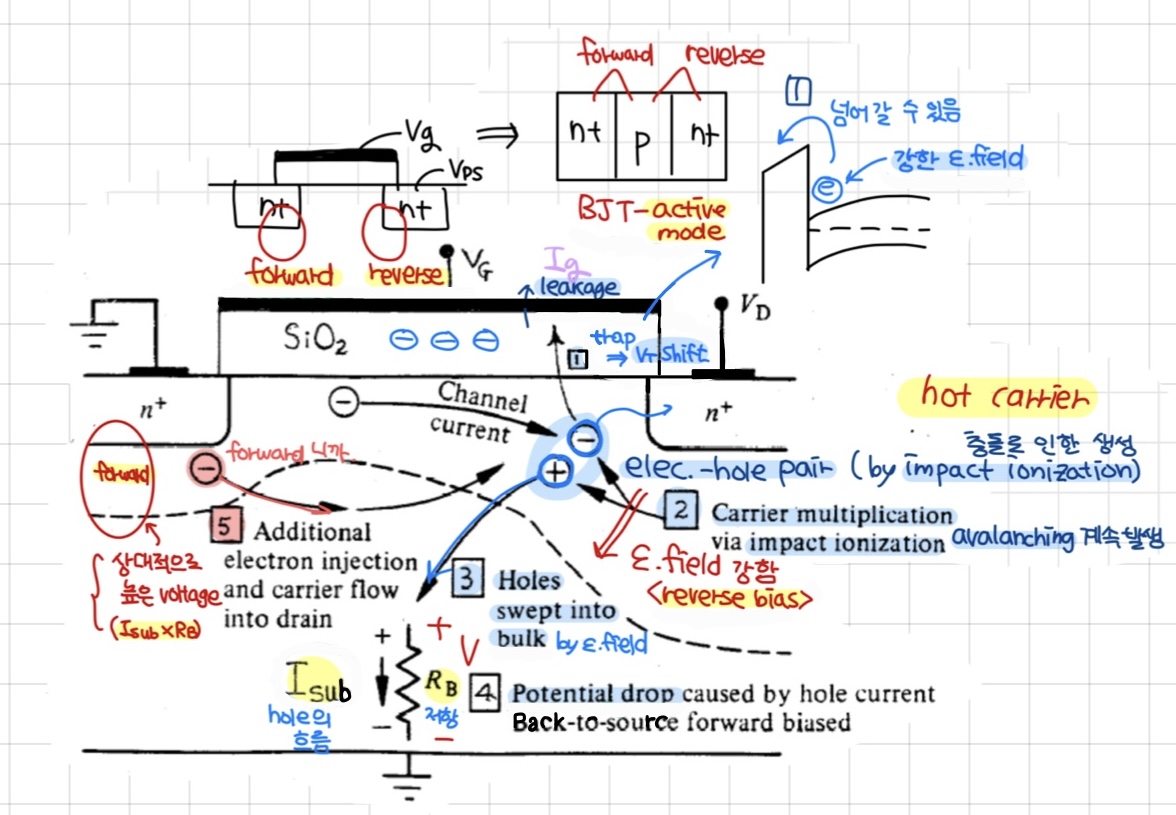 forward reverse
Vg
⇒
n+ p n+
1
넘어갈 수 있음
강한 ε.field
e
VPS
n+ n+
BJT-active
mode
forward reverse
VG
Ig
leakage
VD
SiO2
⊖ ⊖ ⊖
trap
1 ⇒ VT shift
n+
Channel
current
n+
hot carrier
충돌로 인한 생성
elec.-hole pair (by impact ionization)
forward
forward 니까
2 Carrier multiplication
via impact ionization avalanching 계속 발생
5 Additional
electron injection
and carrier flow
into drain
상대적으로
높은 voltage
(Isub×RB)
ε.field 강함
<reverse bias>
3 Holes
swept into
bulk by ε.field
+ +
V
Isub
hole의
흐름
RB
저항
− −
4 Potential drop caused by hole current
Back-to-source forward biased